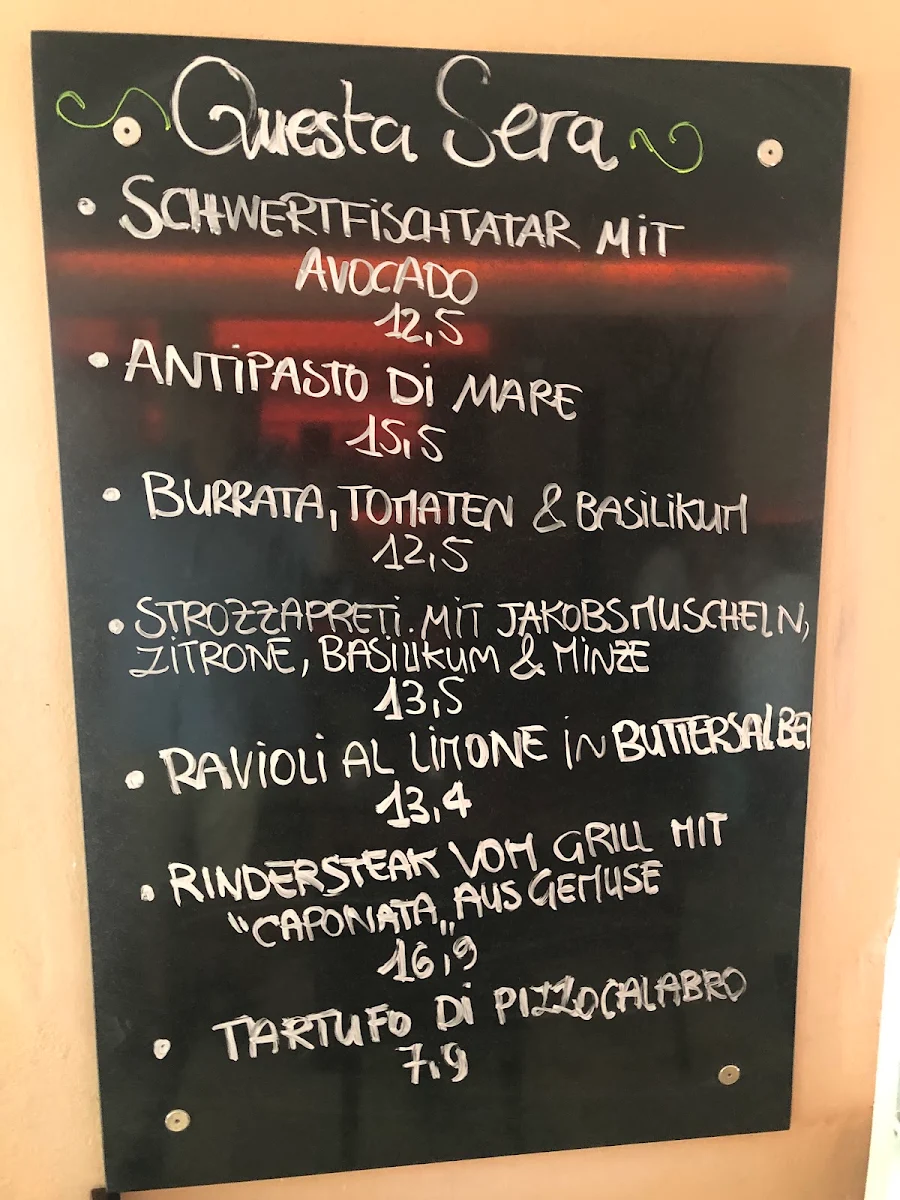 Questa Sera
• SCHWERTFiSCHTATAR MiT
AVOCADO
12,5
• ANTiPASTO Di MARE
15,5
• BURRATA, TOMATEN & BASiLiKUM
12,5
• STROZZAPRETi. MiT JAKOBSMUSCHELN,
ZiTRONE, BASiLiKUM & MiNZE
13,5
• RAViOLi AL LiMONE iN BUTTERSALBEI
13,4
• RINDERSTEAK VOM GRiLL MIT
"CAPONATA" AUS GEMUSE
16,9
• TARTUFO Di PIZZO CALABRO
7,9